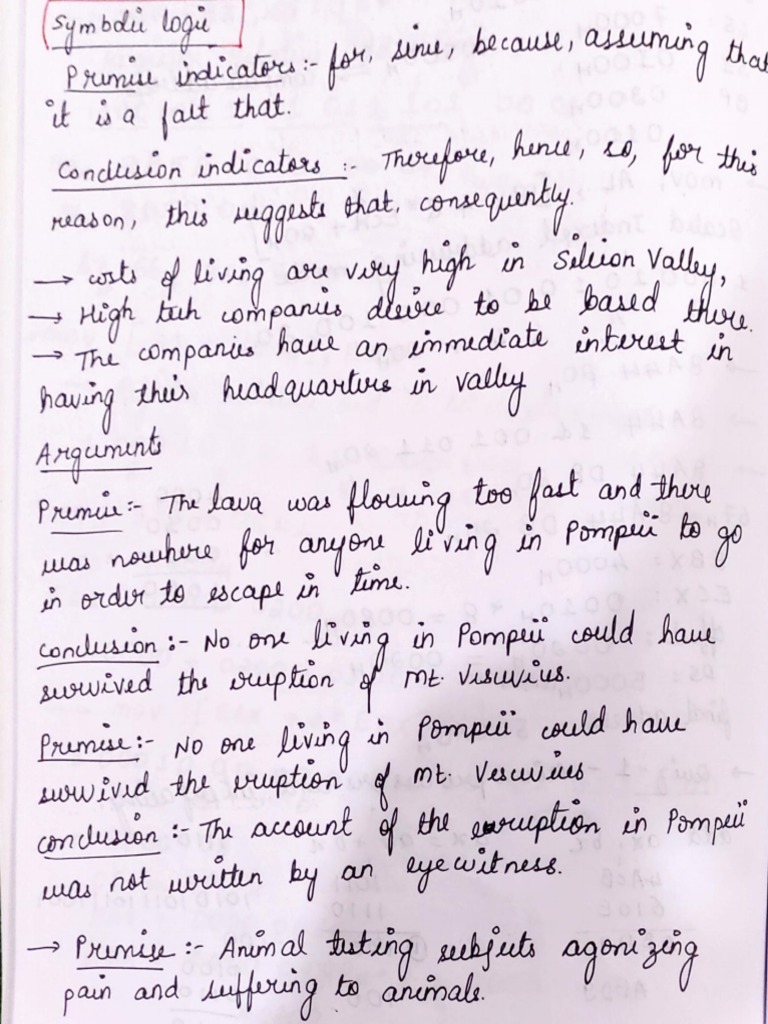 Symbolic logic
Premise indicators :- for, since, because, assuming that
it is a fact that.
Conclusion indicators :- Therefore, hence, so, for this
reason, this suggests that, consequently.
→ costs of living are very high in Silicon Valley,
→ High tech companies desire to be based there.
→ The companies have an immediate interest in
having their headquarters in valley
Arguments
Premise:- The lava was flowing too fast and there
was nowhere for anyone living in Pompeii to go
in order to escape in time.
Conclusion :- No one living in Pompeii could have
survived the eruption of Mt. Vesuvius.
Premise:- No one living in Pompeii could have
survived the eruption of Mt. Vesuvius
Conclusion :- The account of the eruption in Pompeii
was not written by an eyewitness.
→ Premise :- Animal testing subjects agonizing
pain and suffering to animals.